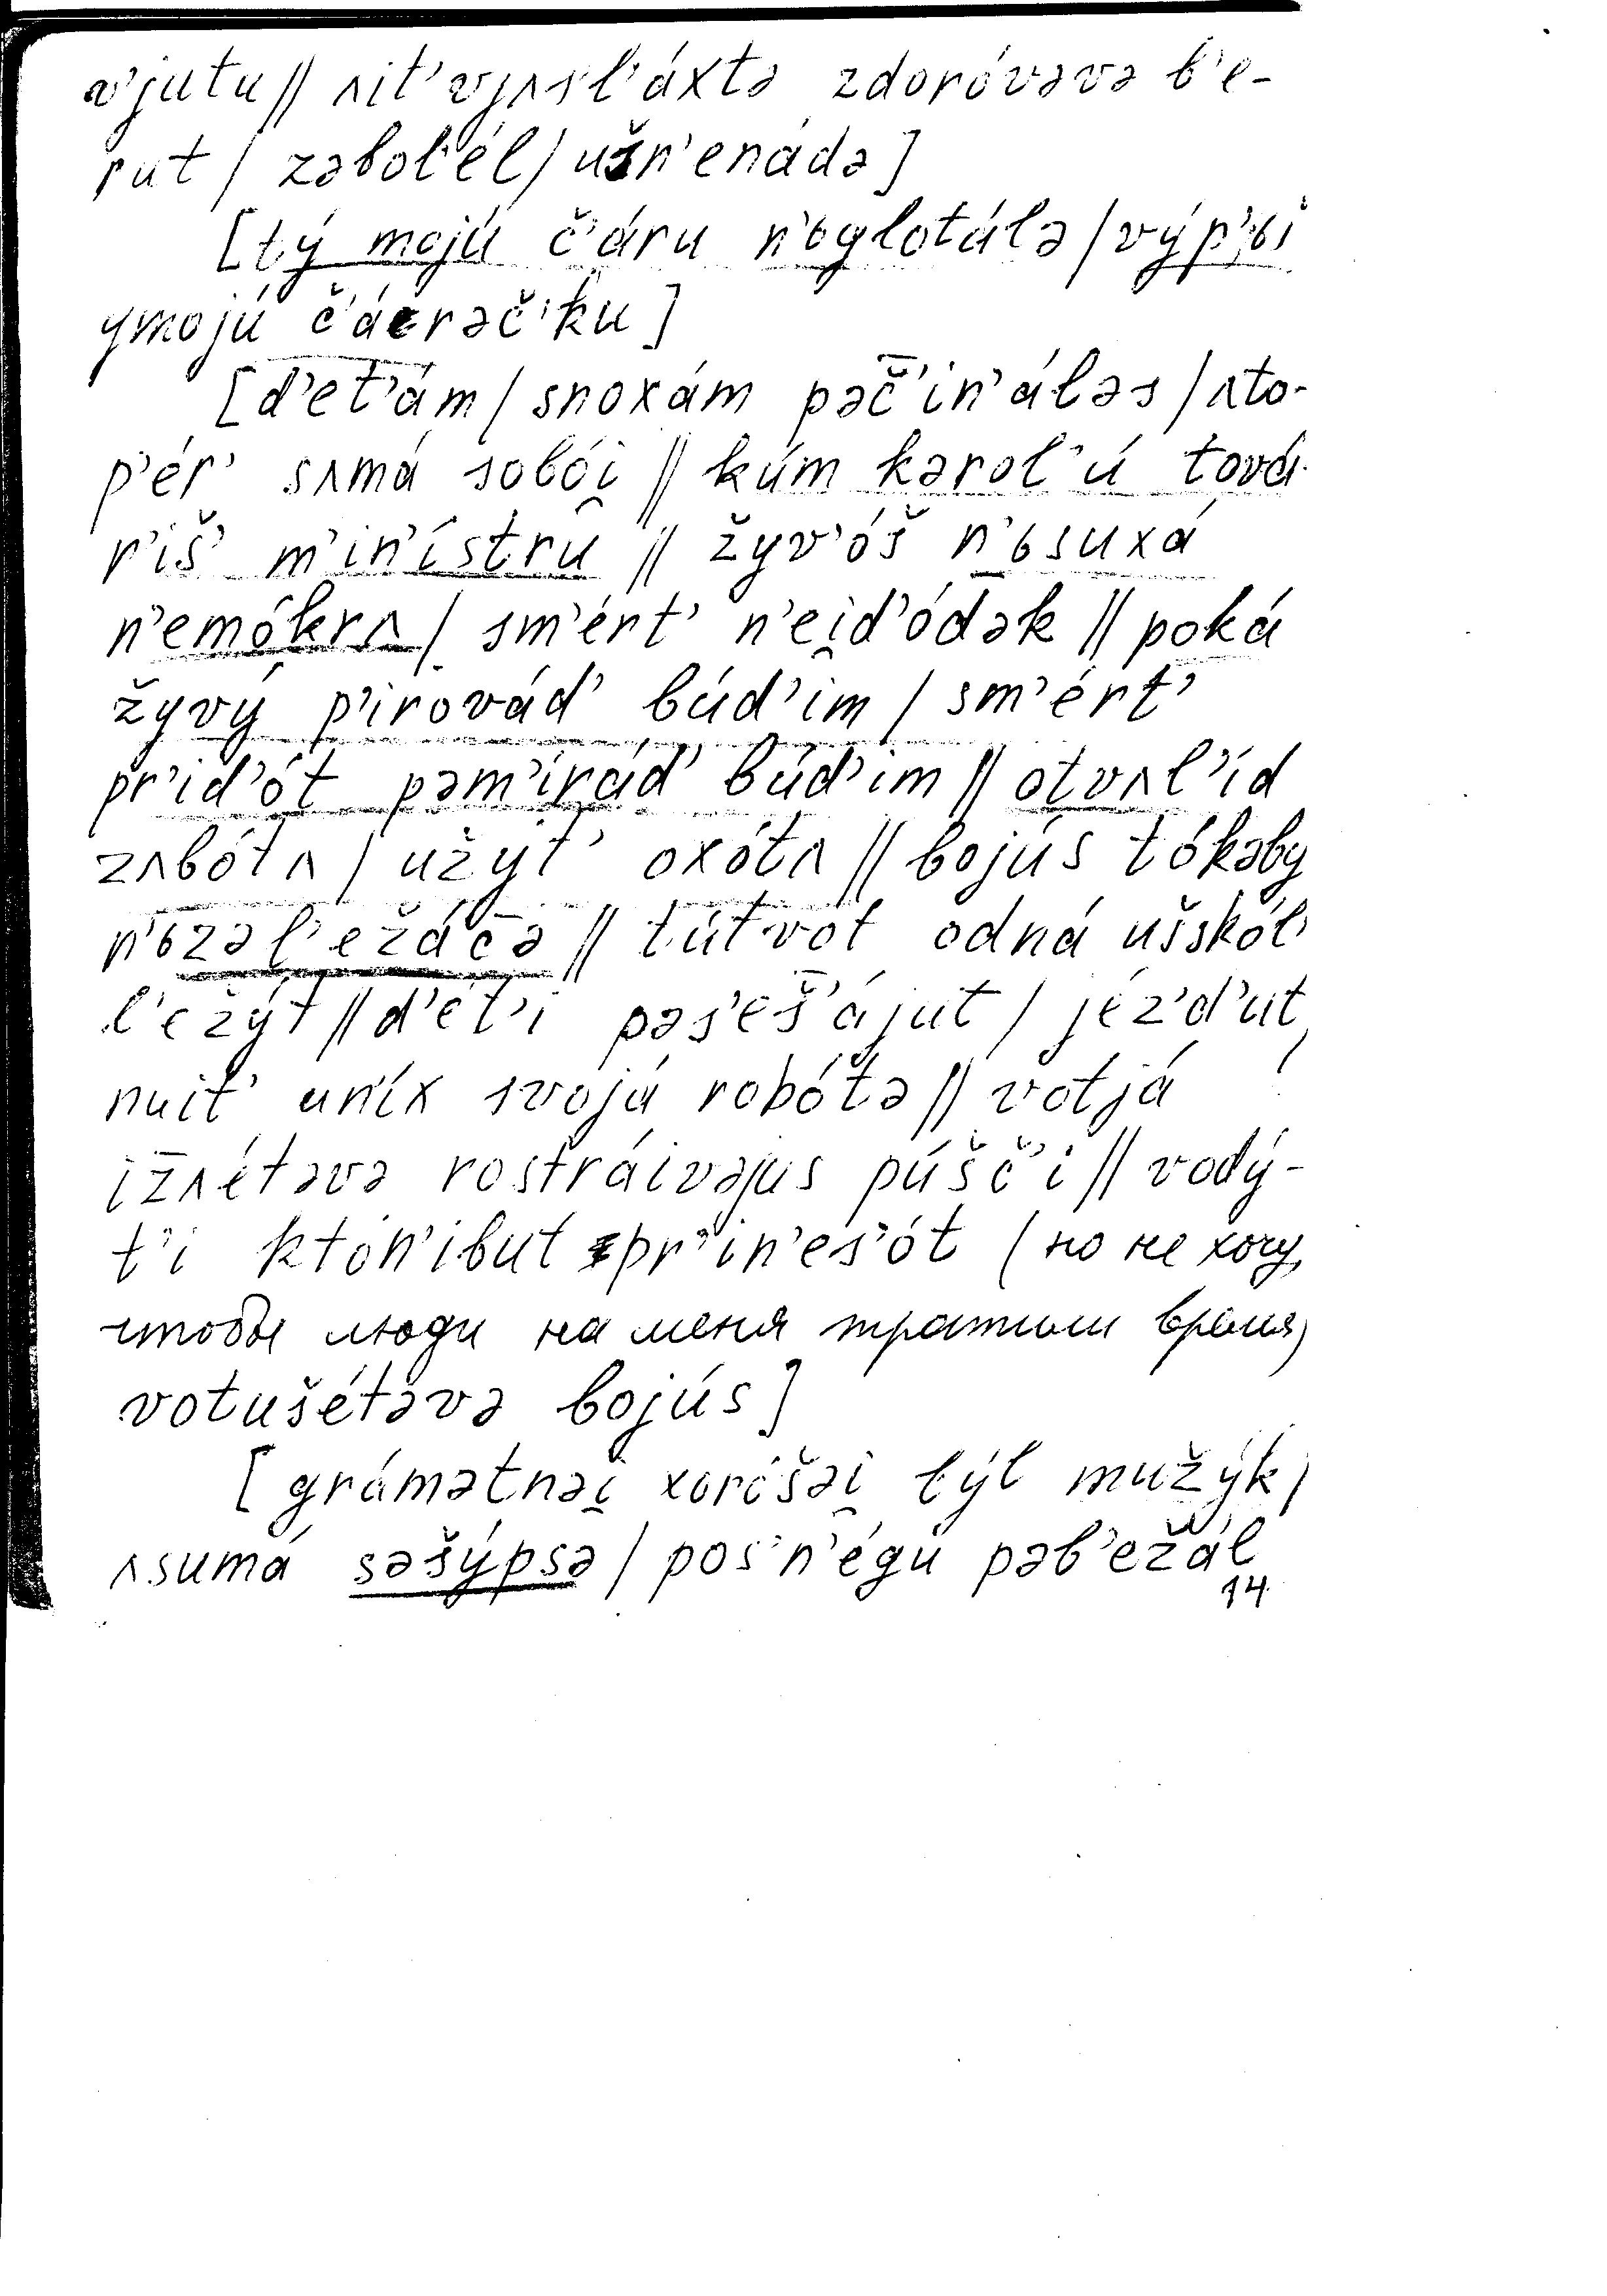 v'jutu // ʌit'vjʌsl'áxtə zdoróvəvə b'e-
rut / zəbol'él / ušn'enádə]
[tý mojú č'áru n'ьglotálə / výp'ьi̯
ymojú č'árəč'ku]
[d'et'ám / snoxám pəč'in'áləs / ʌto-
p'ér' sʌmá sobói̯ // kúm kərol'ú tová-
r'iš' m'in'ístru // žyv'óš n'ьsuxá
n'emókrʌ / sm'ért' n'ei̯d'ódək // poká
žyvý p'irovád' búd'im / sm'ért'
pr'id'ót pəm'irád' búd'im // otvʌl'íd
zʌbótʌ / užýt' oxótʌ // bojús tókəby
n'ьzəl'ežáčə // tútvot odná ušskól'
l'ežýt // d'ét'i pəs'eš'ájut / jéz'd'ut,
nuit' un'íx svojá robótə // votjá
izʌétəvə rostráivəjus púšč'i // vodý-
t'i któn'ibut pr'in'es'ót (но не хочу,
чтобы люди на меня тратили время)
votušétəvə bojús]
[grámətnəi̯ xoróšəi̯ býl mužýk /
ʌsumá səšýpsə / pos'n'égu pəb'ežál
14